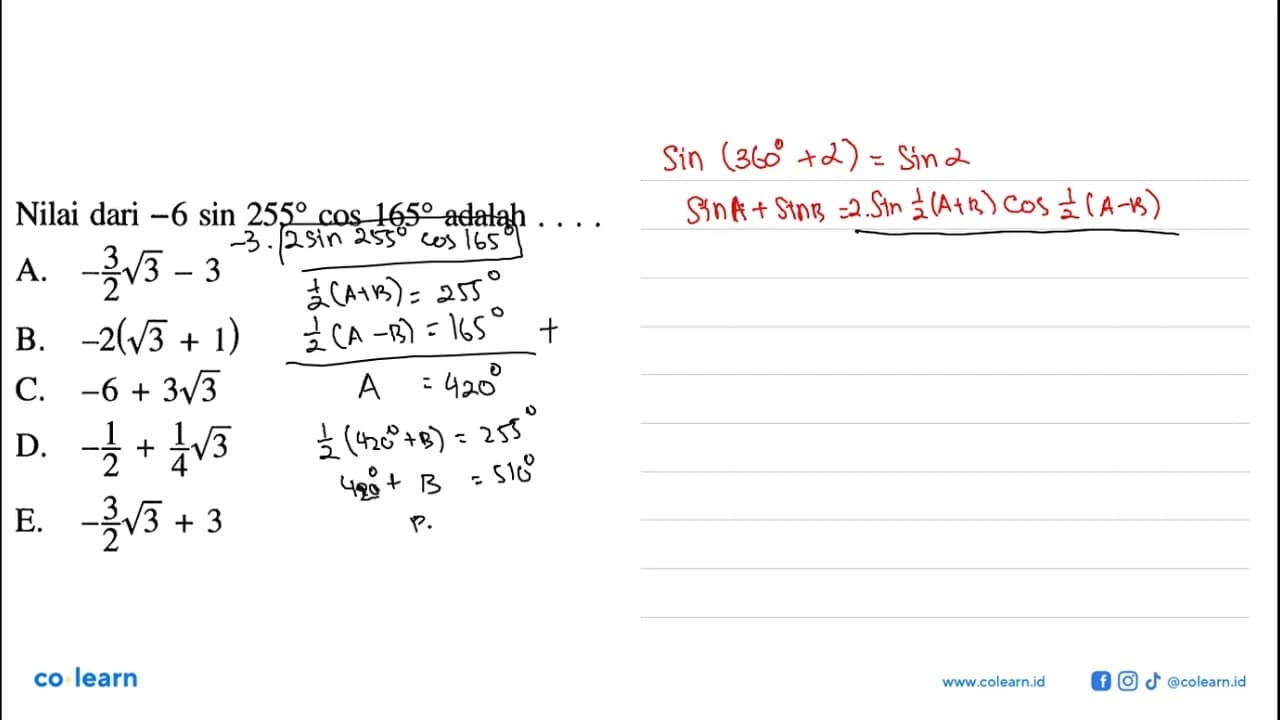 Nilai dari −6 sin 255° cos 165° adalah . . . .
−3 . 2 sin 255° cos 165°
A. −3/2√3 − 3
B. −2(√3 + 1)
C. −6 + 3√3
D. −1/2 + 1/4√3
E. −3/2√3 + 3
1/2 (A+B) = 255°
1/2 (A−B) = 165° +
A = 420°
1/2 (420° + B) = 255°
420° + B = 510°
Sin (360° + 2) = Sin 2
Sin A + Sin B = 2. Sin 1/2 (A+B) Cos 1/2 (A−B)
co learn
www.colearn.id
@colearn.id